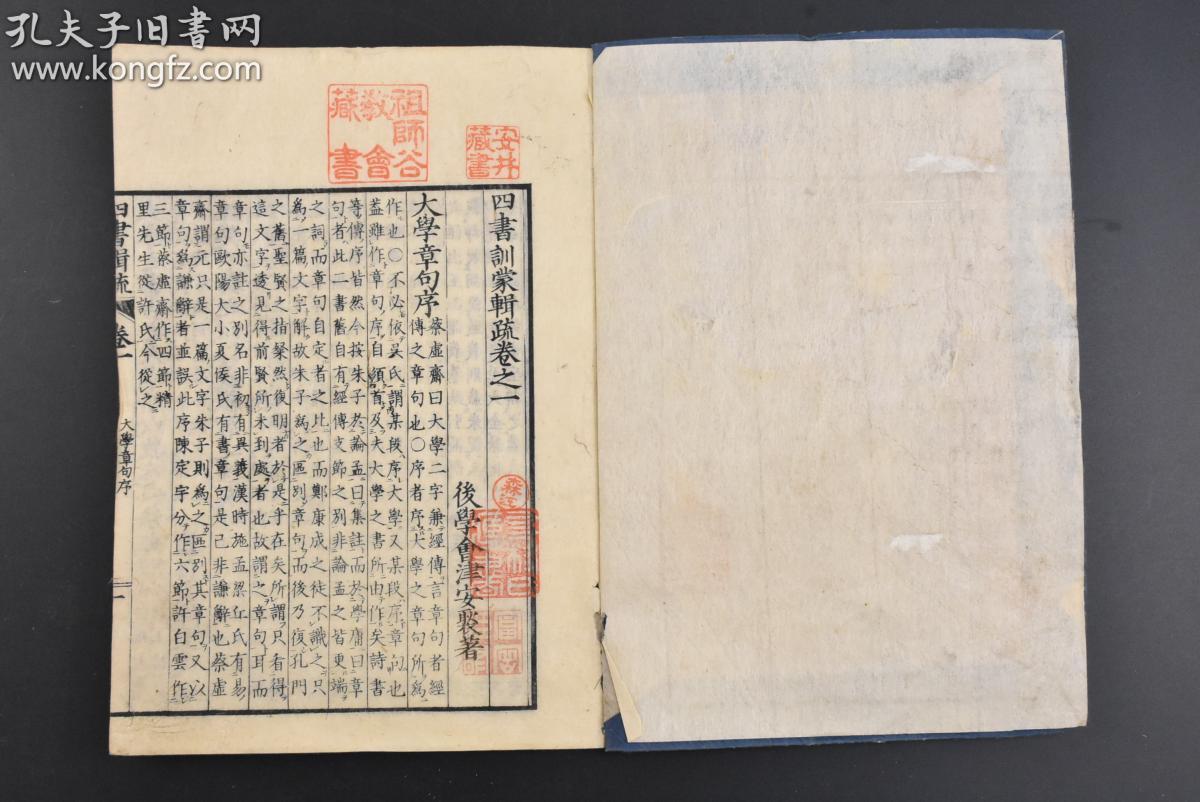 孔夫子旧书网
www.kongfz.com
祖師谷
教會
藏書
安井
藏書
四書訓蒙輯疏卷之一
後學會津安褧著
大學章句序
蔡虛齋曰大學二字兼經傳言章句者經
傳之章句也○序者序大學之章句所爲
作也○不必依吳氏謂某段序大學又某段序章句也
蓋雖作章句序自須首及夫大學之書所由作矣詩書
等傳序皆然今按朱子於論孟曰集註而於學庸曰章
句者此二書舊自有經傳支節之別非論孟之皆更端
之詞而章句自定者之比也而鄭康成之徒不識之只
爲一篇文字解故朱子爲之區別章句而後乃復孔門
之舊聖賢之指粲然復明者於是乎在矣所謂只看得
這文字透見得前賢所未到處者也故謂之章句耳而
章句亦註之別名非初有異義漢時施孟梁丘氏有易
章句歐陽大小夏侯氏有書章句是已非謙辭也蔡虛
齋謂元只是一篇文字朱子則爲之區別其章句又以
章句爲謙辭者並誤此序陳定宇分作六節許白雲作
三節蔡虛齋作四節精
里先生從許氏今從之
四書輯疏
卷一
大學章句序
一